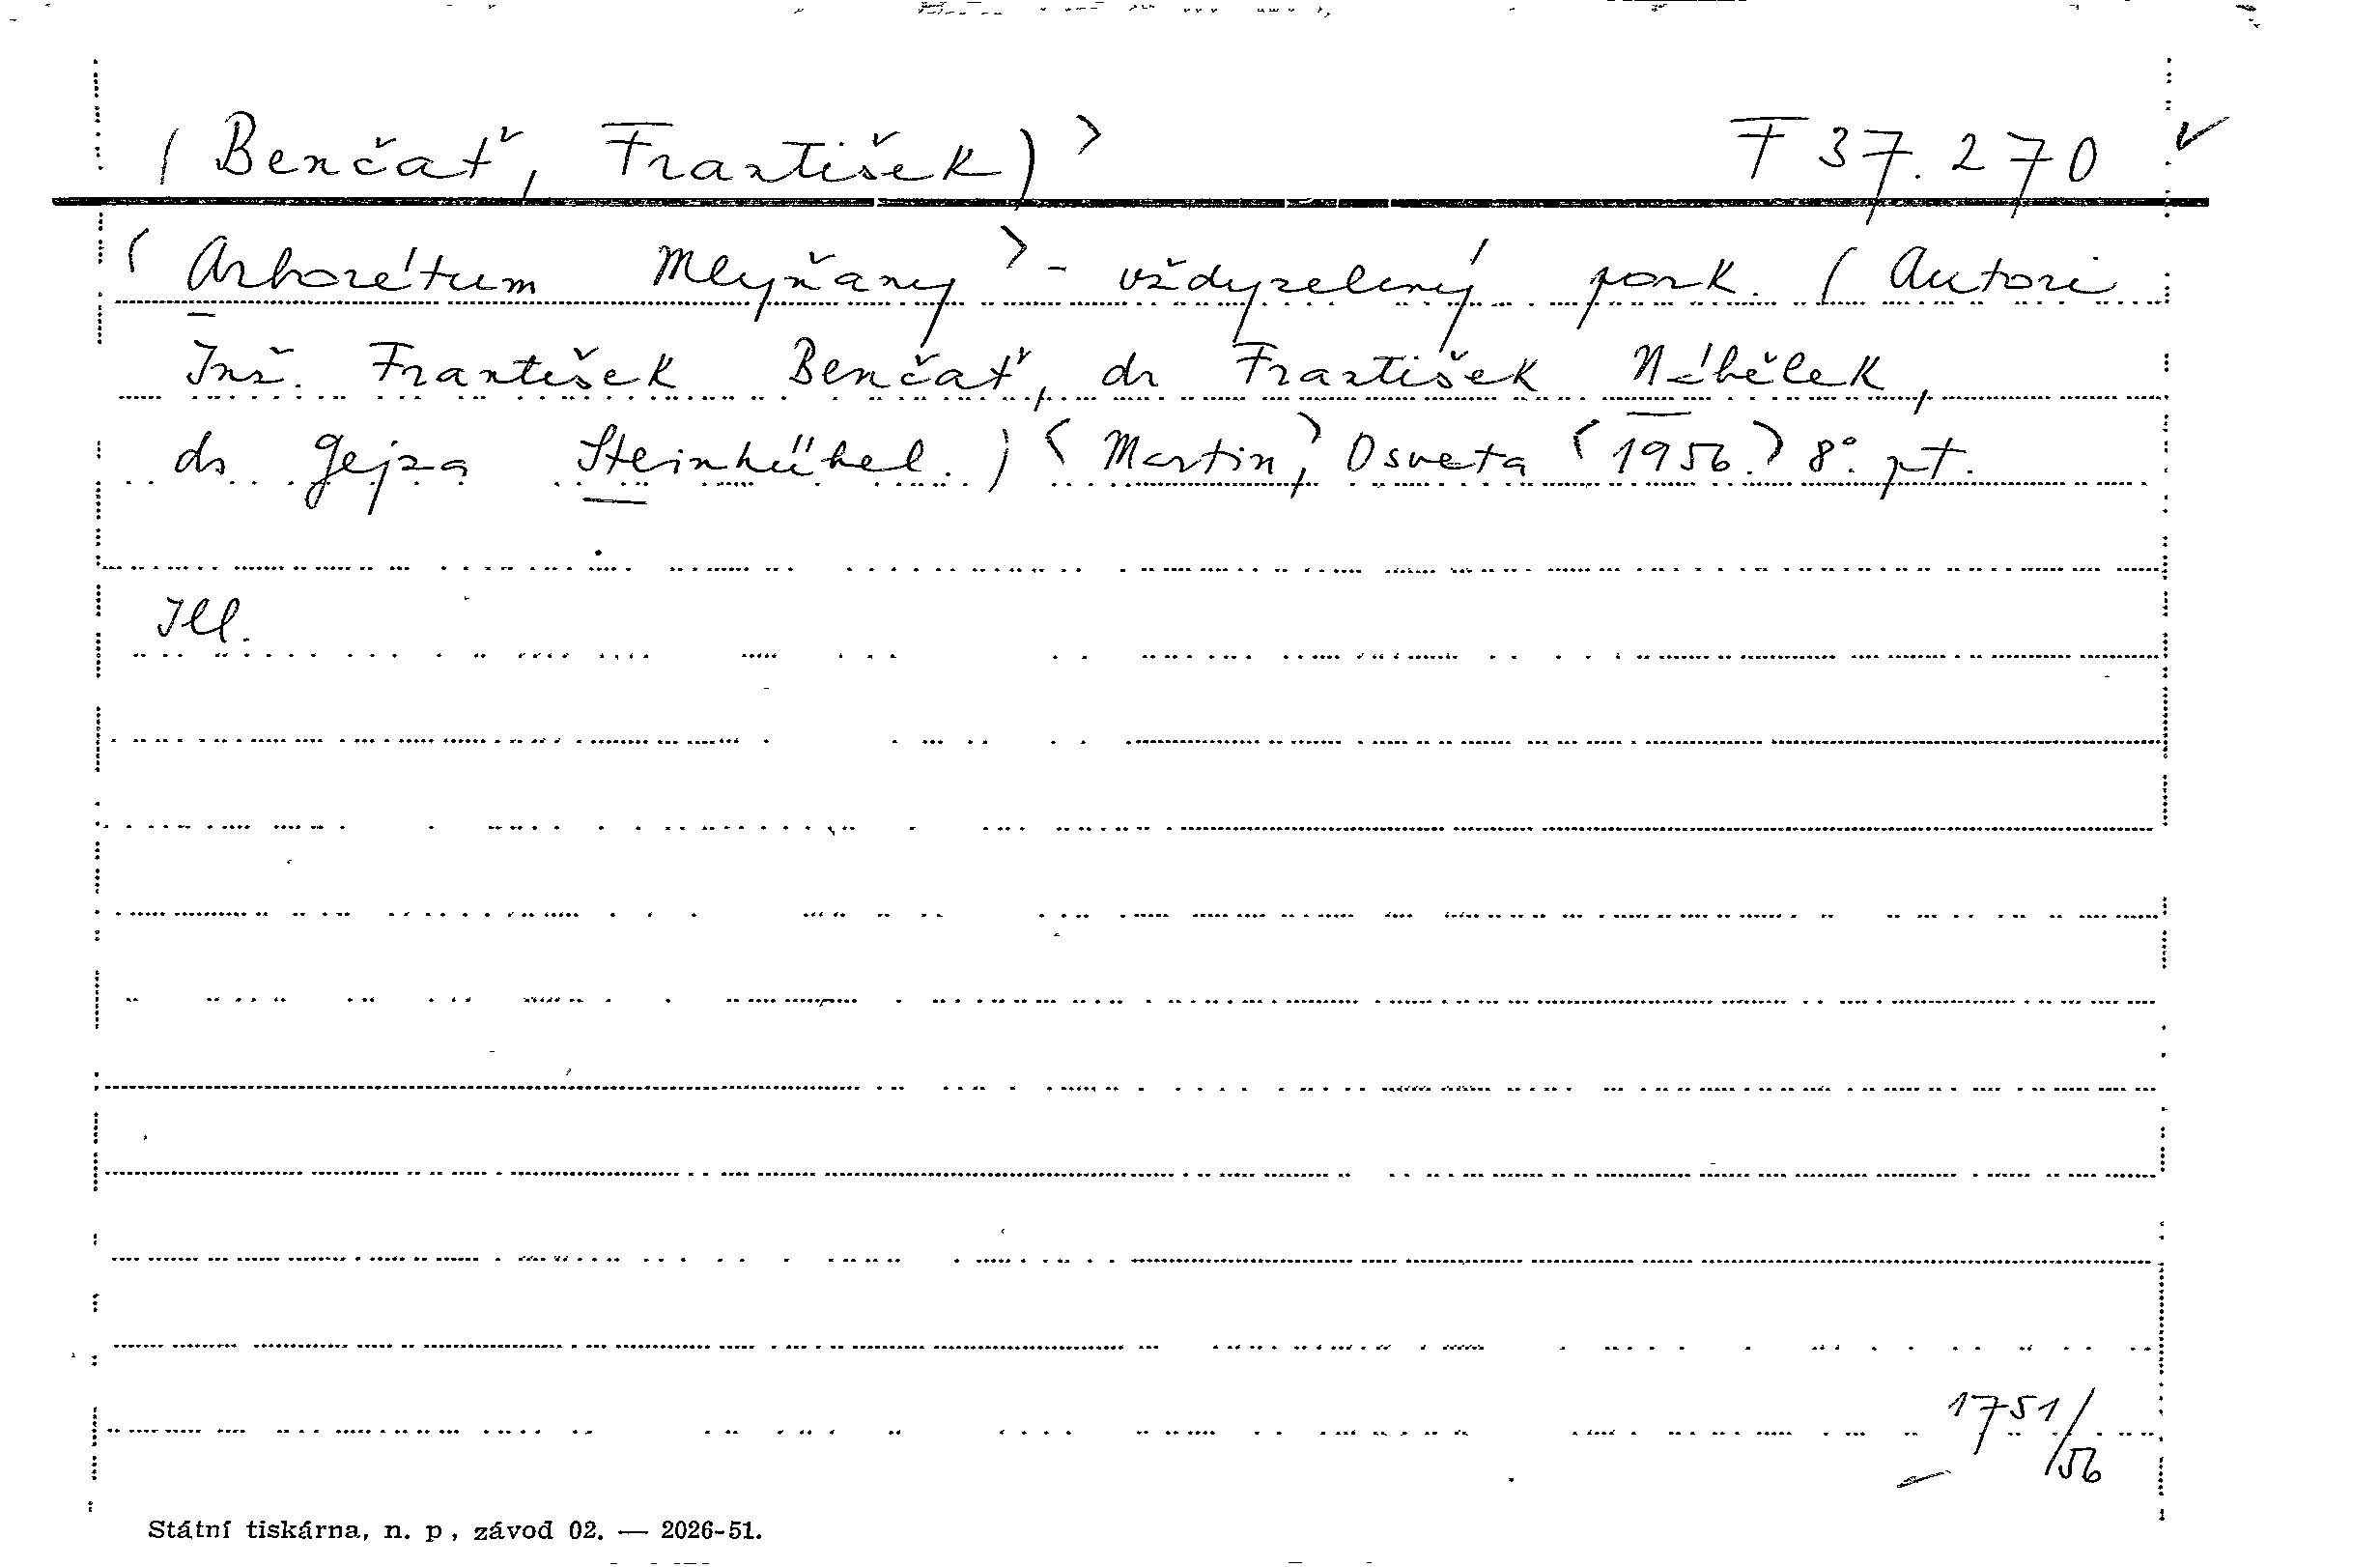 (Benčať, František)> F 37.270 ✓
<Arborétum Mlyňany> - vždyzelený park. (Autori
Inž. František Benčať, dr František Nábělek,
dr Gejza Steinhübel.) <Martin,> Osveta <1956.> 8°. pt.
Ill.
1751/56
Státní tiskárna, n. p., závod 02. — 2026-51.